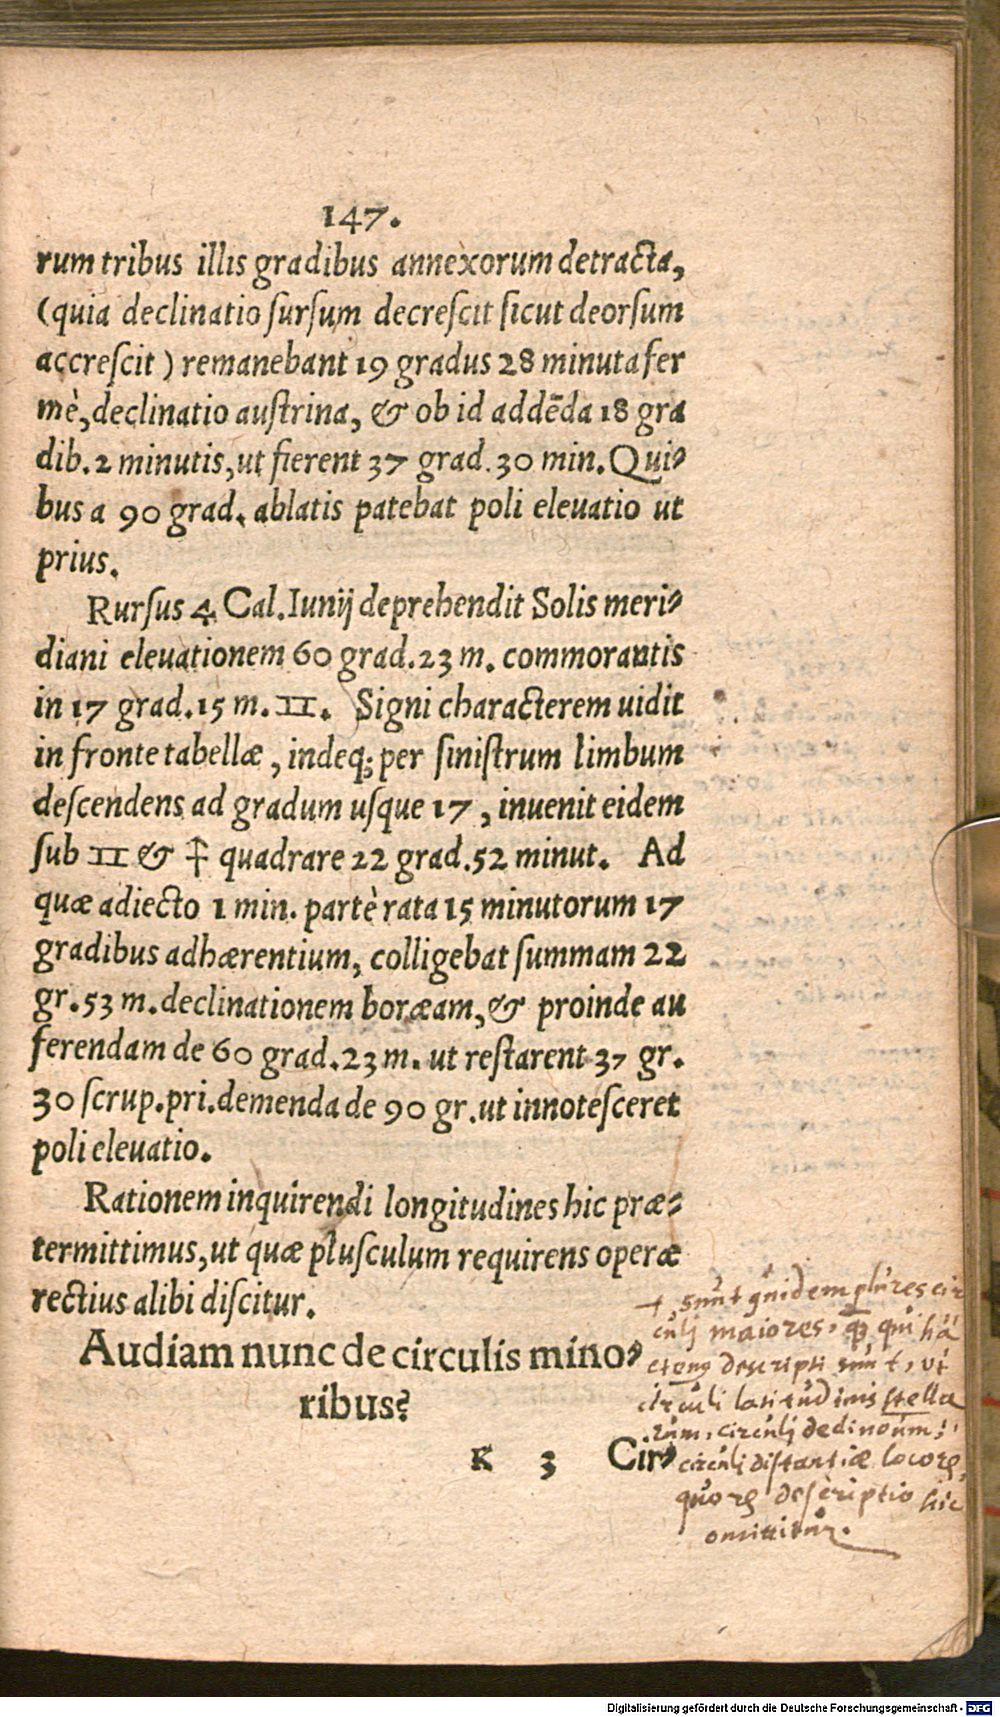 147.
rum tribus illis gradibus annexorum detracta,
(quia declinatio ſurſum decreſcit ſicut deorſum
accreſcit) remanebant 19 gradus 28 minuta fer
mè, declinatio auſtrina, & ob id addēda 18 gra
dib. 2 minutis, ut fierent 37 grad. 30 min. Qui⸗
bus a 90 grad. ablatis patebat poli eleuatio ut
prius.
Rurſus 4 Cal. Iunij deprehendit Solis meri⸗
diani eleuationem 60 grad. 23 m. commorantis
in 17 grad. 15 m. II. Signi characterem uidit
in fronte tabellæ, indeq; per ſiniſtrum limbum
deſcendens ad gradum uſque 17, inuenit eidem
ſub II & quadrare 22 grad. 52 minut. Ad
quæ adiecto 1 min. parte rata 15 minutorum 17
gradibus adhærentium, colligebat ſummam 22
gr. 53 m. declinationem boræam, & proinde au
ferendam de 60 grad. 23 m. ut reſtarent 37 gr.
30 ſcrup. pri. demenda de 90 gr. ut innoteſceret
poli eleuatio.
Rationem inquirendi longitudines hic præ⸗
termittimus, ut quæ pluſculum requirens operæ
rectius alibi diſcitur.
Audiam nunc de circulis mino⸗
ribus?
K 3 Cir⸗
+ sunt quidem plures cir
culj maiores, qui hac
descripti sunt, ut
circuli latitudinis stella
rum, circulj
circulj distantiæ
descriptio hic
omittitur.
Digitalisierung gefördert durch die Deutsche Forschungsgemeinschaft - DFG